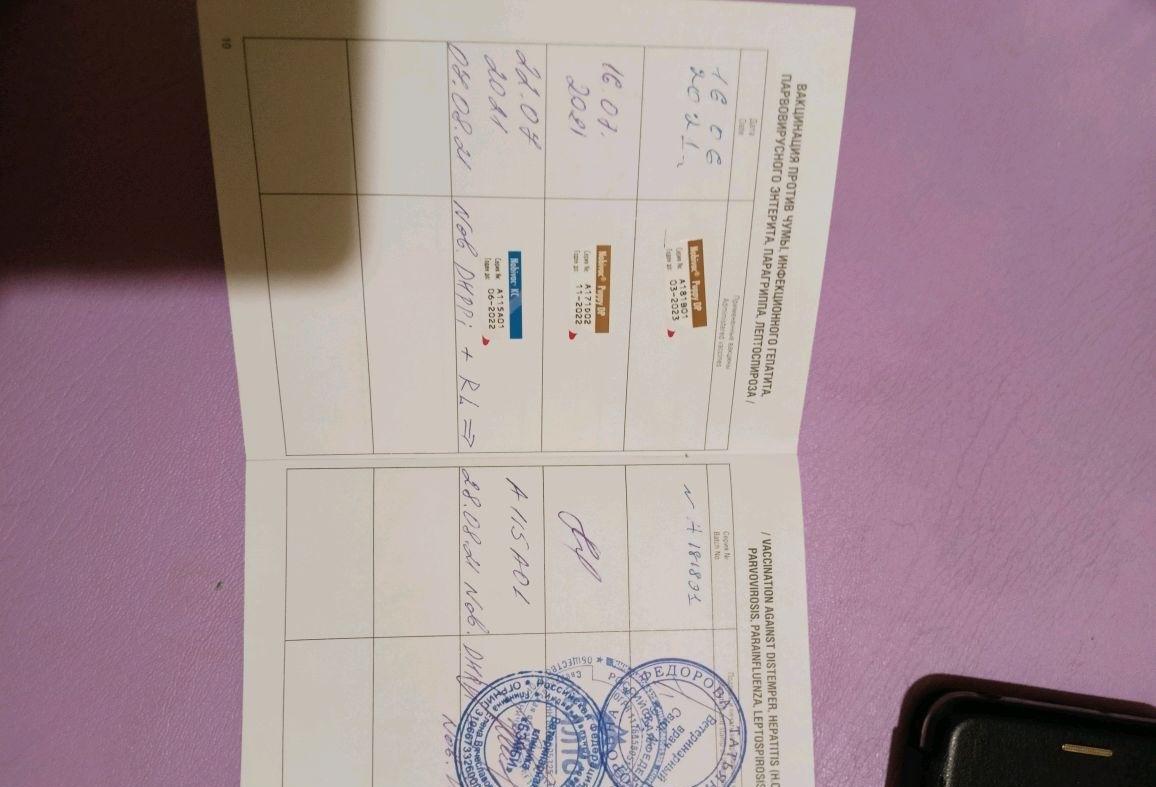 ВАКЦИНАЦИЯ ПРОТИВ ЧУМЫ, ИНФЕКЦИОННОГО ГЕПАТИТА,
ПАРВОВИРУСНОГО ЭНТЕРИТА, ПАРАГРИППА, ЛЕПТОСПИРОЗА /
/ VACCINATION AGAINST DISTEMPER, HEPATITIS (H.C
PARVOVIROSIS, PARAINFLUENZA, LEPTOSPIROSIS
Дата
Date
Примененные вакцины
Administered vaccines
Серия №
Batch No.
16 06
2021г
Nobivac® Puppy DP
Серия №: A181B01
Годен до: 03-2023
N A181B01
16.07.
2021
Nobivac® Puppy DP
Серия №: A171D02
Годен до: 11-2022
22.07
2021
Nobivac KC
Серия №: A115A01
Годен до: 06-2022
A115A01
07.08.21 Nob. DHPPi + RL ⇒
28.08.21 Nob.
ФЕДОРОВА
Ветеринарный
врач
10